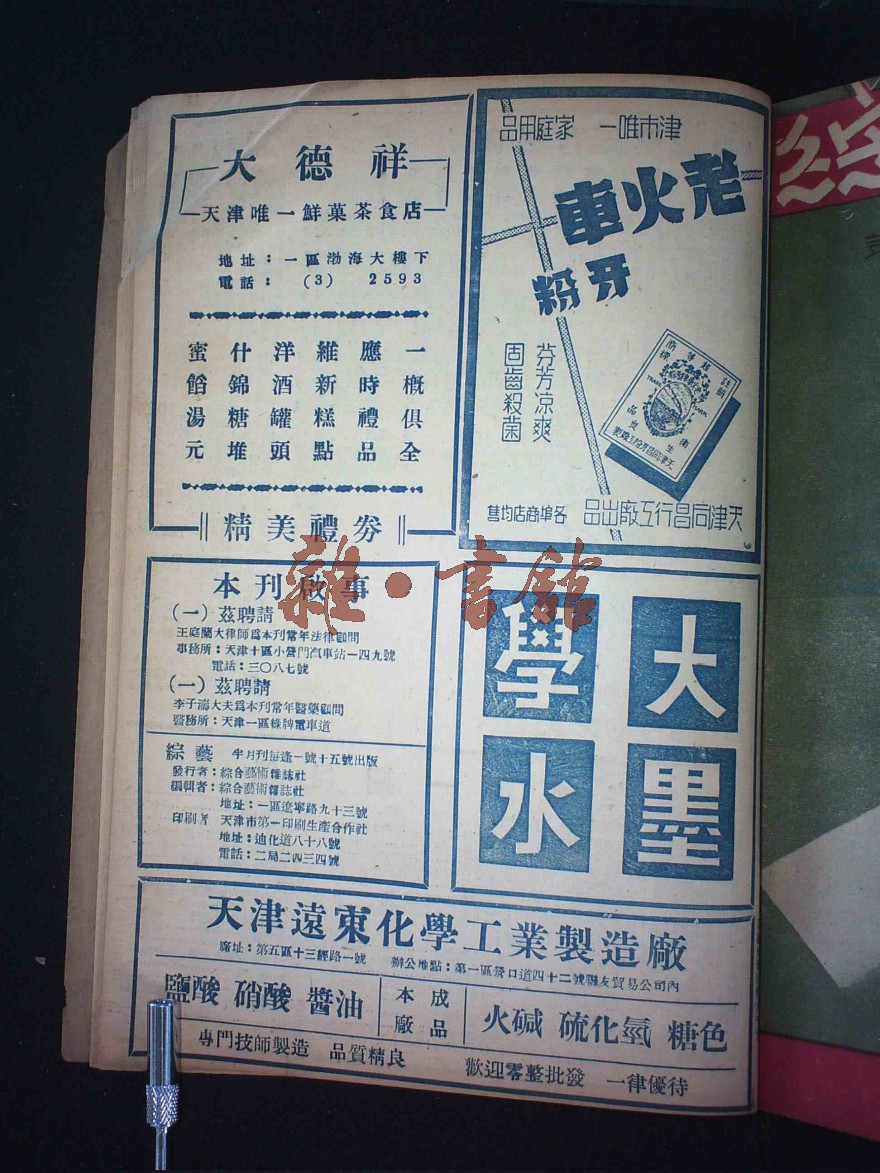 大德祥
天津唯一鮮菓茶食店
地址：一區渤海大樓下
電話：(3) 2593
一概俱全
應時禮品
維新糕點
洋酒罐頭
什錦糖堆
蜜餡湯元
精美禮券
津市唯一 家庭用品
老火車
牙粉
芬芳凉爽
固齒殺菌
註册
商標
TRADE MARK
衛生良品
天津同昌行工廠出品 各埠商店均售
本刊啟事
(一) 茲聘請
王庭蘭大律師爲本刊常年法律顧問
事務所：天津十區小營門汽車站一四九號
電話：三〇八七號
(一) 茲聘請
李子濤大夫爲本刊常年醫藥顧問
醫務所：天津一區綠牌電車道
綜藝 半月刊每逢一號十五號出版
發行者：綜合藝術雜誌社
編輯者：綜合藝術雜誌社
地址：一區遼寧路九十三號
印刷者 天津市第一印刷生產合作社
地址：迪化道八十八號
電話：二局二四三四號
大學
墨水
天津遠東化學工業製造廠
廠址：第五區十三經路一號 辦公地點：第一區營口道四十二號聯友貿易公司內
鹽酸 硝酸 醬油 本廠成品 火碱 硫化氫 糖色
專門技師製造 品質精良 歡迎零整批發 一律優待
雜·書館